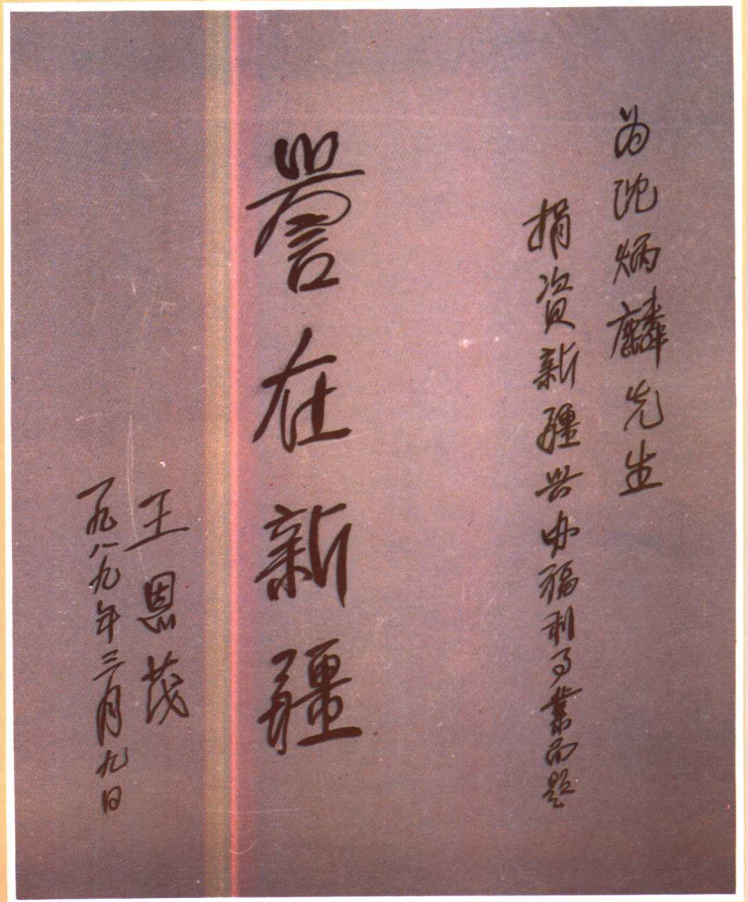 为沈炳麟先生
捐资新疆兴办福利事业而题
誉在新疆
王恩茂
一九八九年三月九日